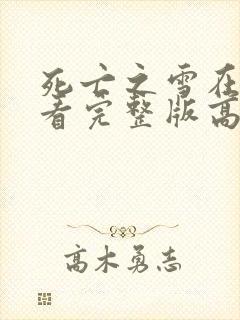 死亡之雪在
看完整版高
高木勇志